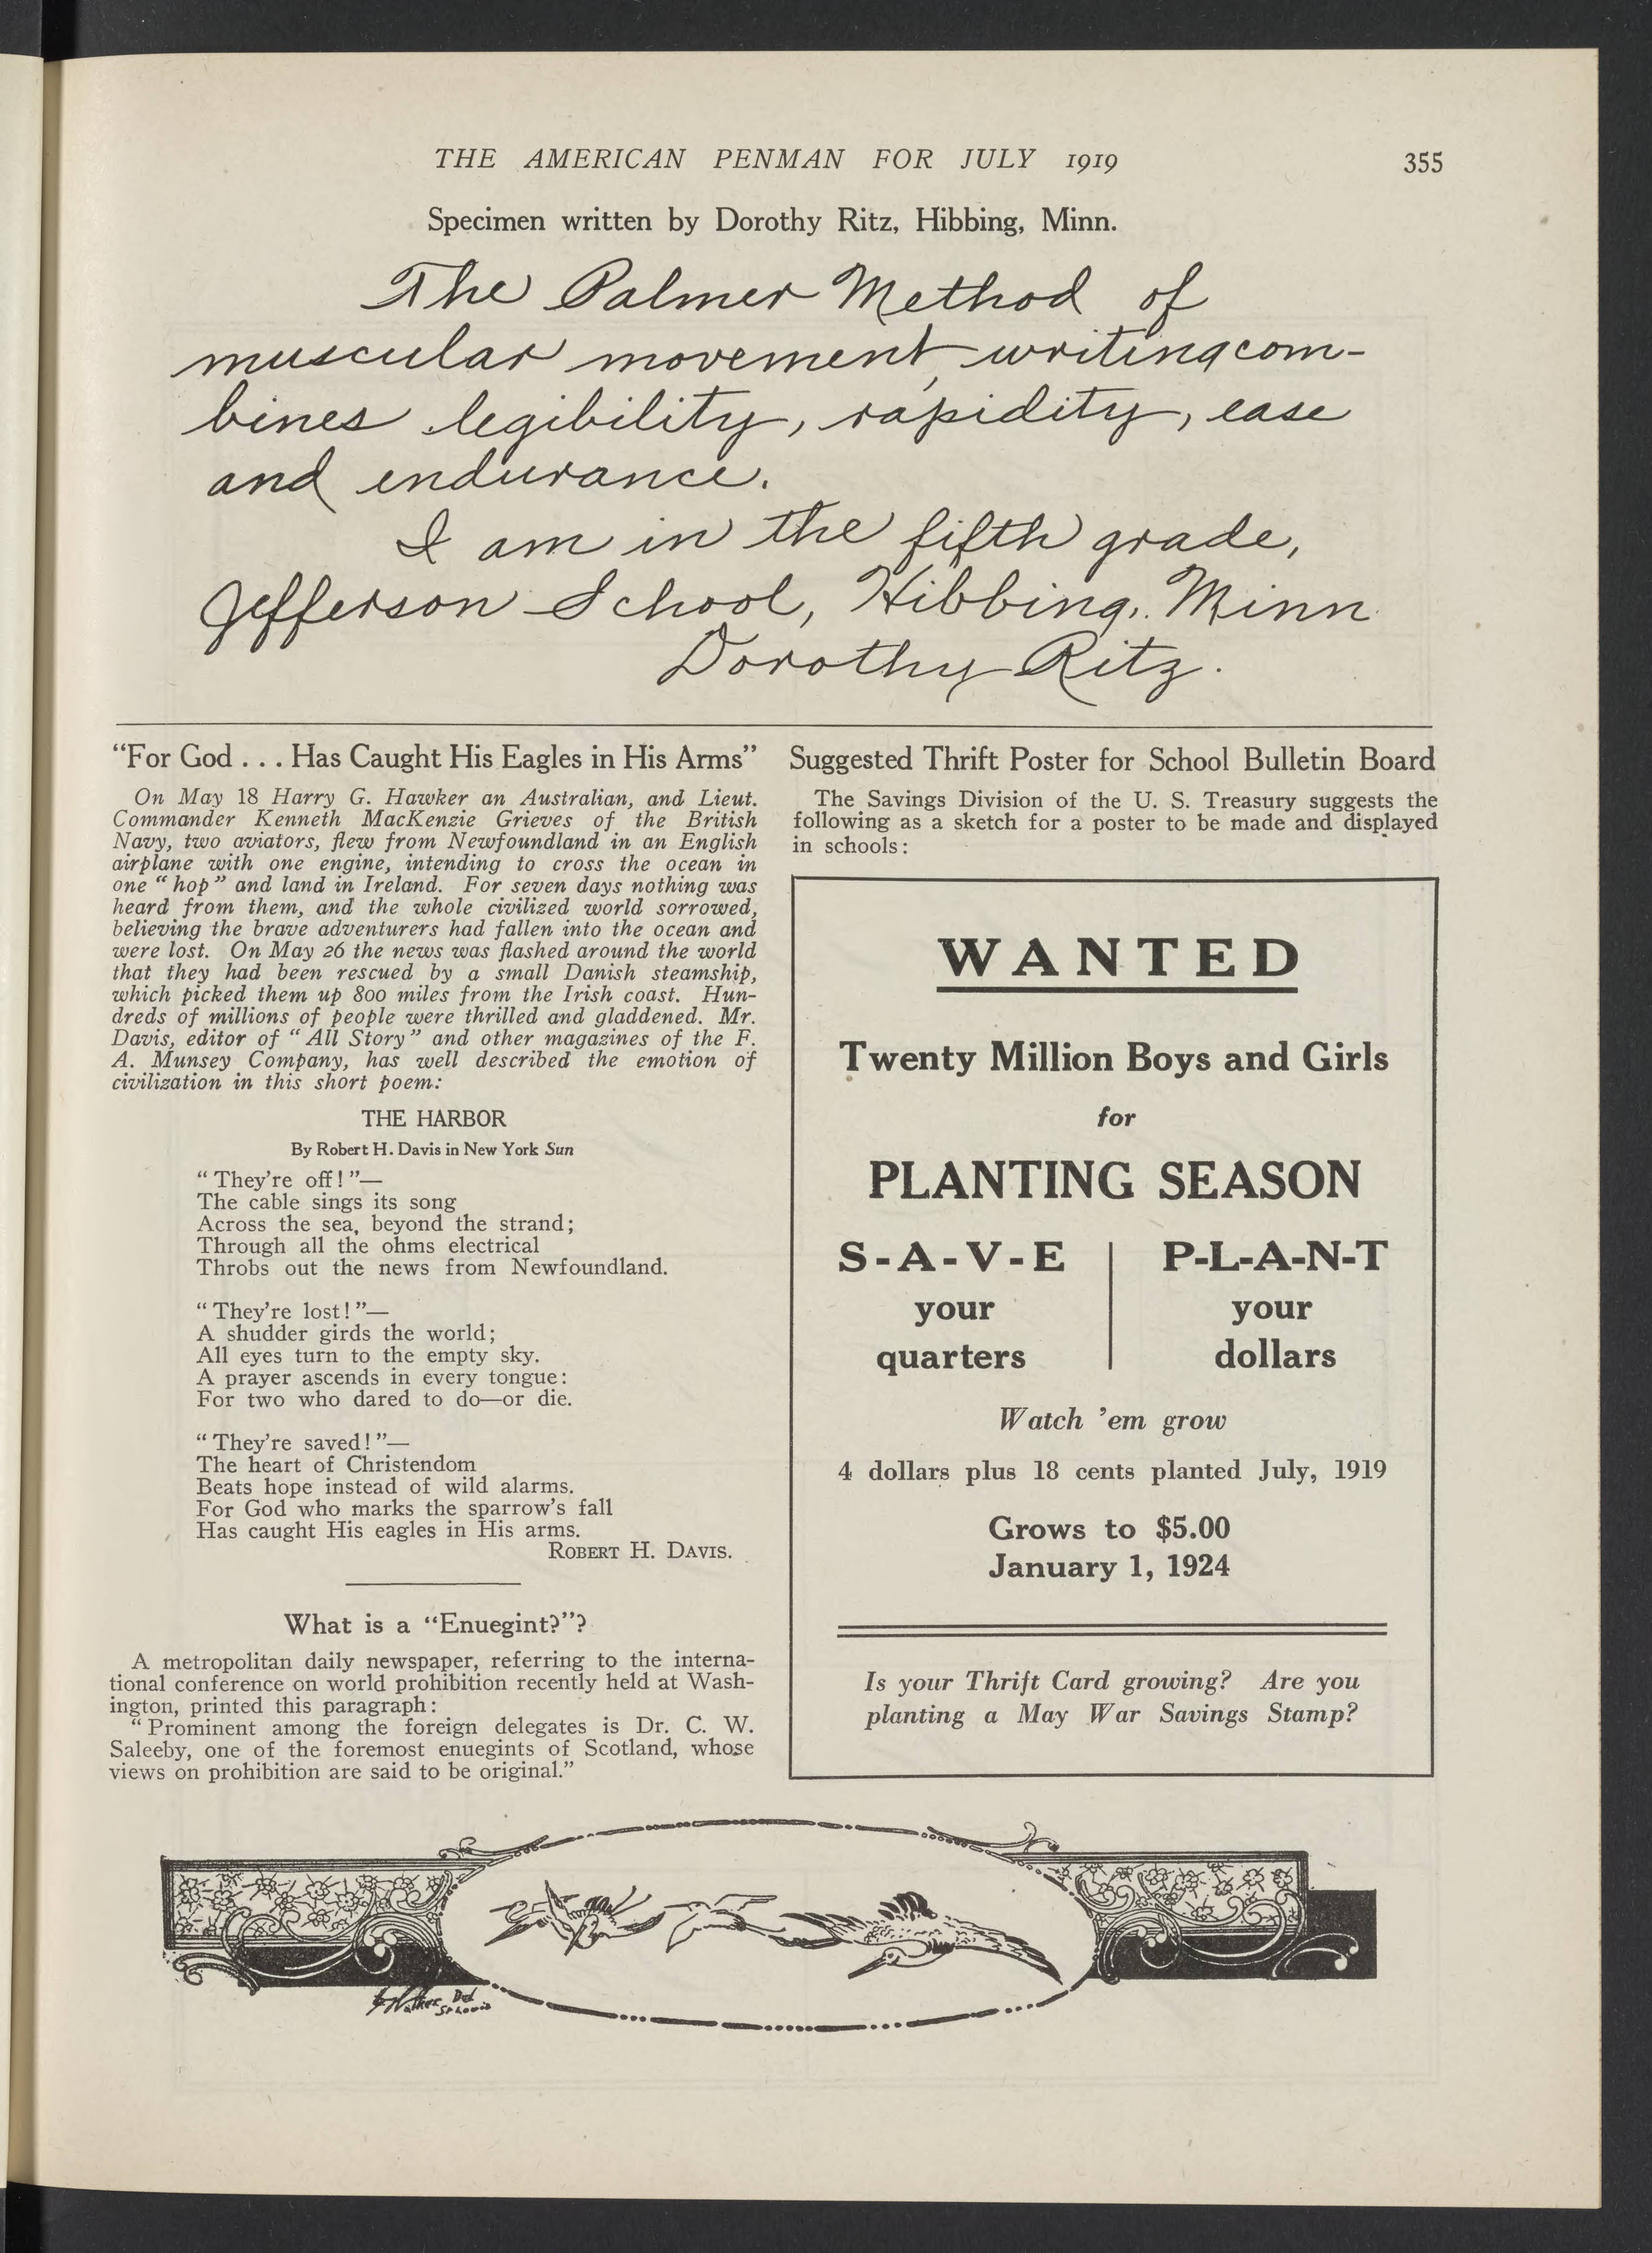 THE AMERICAN PENMAN FOR JULY 1919
355
Specimen written by Dorothy Ritz, Hibbing, Minn.
The Palmer Method of
muscular movement, writing com-
bines legibility, rapidity, ease
and endurance.
I am in the fifth grade,
Jefferson School, Hibbing, Minn.
Dorothy Ritz.
"For God . . . Has Caught His Eagles in His Arms"
On May 18 Harry G. Hawker an Australian, and Lieut.
Commander Kenneth MacKenzie Grieves of the British
Navy, two aviators, flew from Newfoundland in an English
airplane with one engine, intending to cross the ocean in
one "hop" and land in Ireland. For seven days nothing was
heard from them, and the whole civilized world sorrowed,
believing the brave adventurers had fallen into the ocean and
were lost. On May 26 the news was flashed around the world
that they had been rescued by a small Danish steamship,
which picked them up 800 miles from the Irish coast. Hun-
dreds of millions of people were thrilled and gladdened. Mr.
Davis, editor of "All Story" and other magazines of the F.
A. Munsey Company, has well described the emotion of
civilization in this short poem:
THE HARBOR
By Robert H. Davis in New York Sun
"They're off!"—
The cable sings its song
Across the sea, beyond the strand;
Through all the ohms electrical
Throbs out the news from Newfoundland.
"They're lost!"—
A shudder girds the world;
All eyes turn to the empty sky.
A prayer ascends in every tongue:
For two who dared to do—or die.
"They're saved!"—
The heart of Christendom
Beats hope instead of wild alarms.
For God who marks the sparrow's fall
Has caught His eagles in His arms.
ROBERT H. DAVIS.
What is a "Enuegint?"?
A metropolitan daily newspaper, referring to the interna-
tional conference on world prohibition recently held at Wash-
ington, printed this paragraph:
"Prominent among the foreign delegates is Dr. C. W.
Saleeby, one of the foremost enuegints of Scotland, whose
views on prohibition are said to be original."
Suggested Thrift Poster for School Bulletin Board
The Savings Division of the U. S. Treasury suggests the
following as a sketch for a poster to be made and displayed
in schools:
WANTED
Twenty Million Boys and Girls
for
PLANTING SEASON
S-A-V-E
your
quarters
P-L-A-N-T
your
dollars
Watch 'em grow
4 dollars plus 18 cents planted July, 1919
Grows to $5.00
January 1, 1924
Is your Thrift Card growing? Are you
planting a May War Savings Stamp?
St Louis